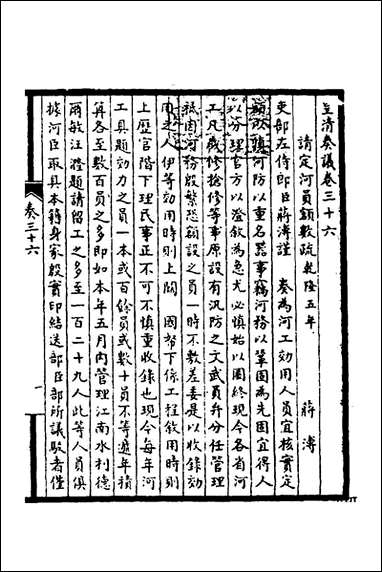 皇清奏議卷三十六
請定河員額數疏乾隆五年 蔣溥
吏部左侍郎臣蔣溥謹 奏為河工効用人員宜核實定
額以慎河防以重名器事竊河務以鞏固為先固宜得人
以分理官方以澄敘為急尤必慎始以圖終現今各省河
工凡歲修搶修等事原設有汛防之文武員弁分任管理
祗因河務殷繁恐額設之員一時不敷差委是以收錄効
用之人伊等効用時則上關 國帑下係工程敘用時則
上歷官階下理民事正不可不慎重收錄也現今每年河
工具題効力之員一本或百餘員或數十員不等通年積
算各至數百員之多即如本年五月內管理江南水利德
爾敏汪漋題請留工之多至一百二十九人此等人員俱
據河臣取具本籍身家殷實印結送部臣部所議駁者僅
奏三十六
一